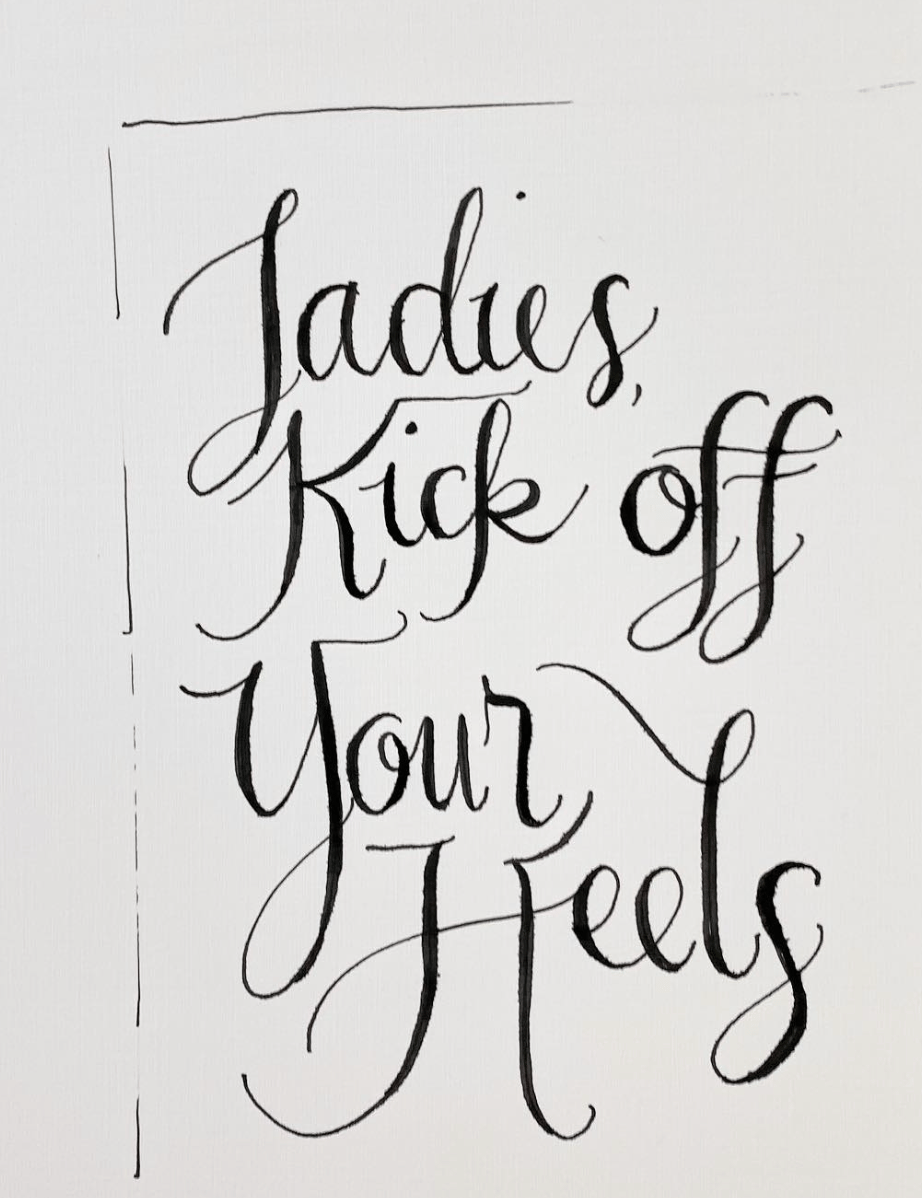 Ladies,
Kick off
Your
Heels